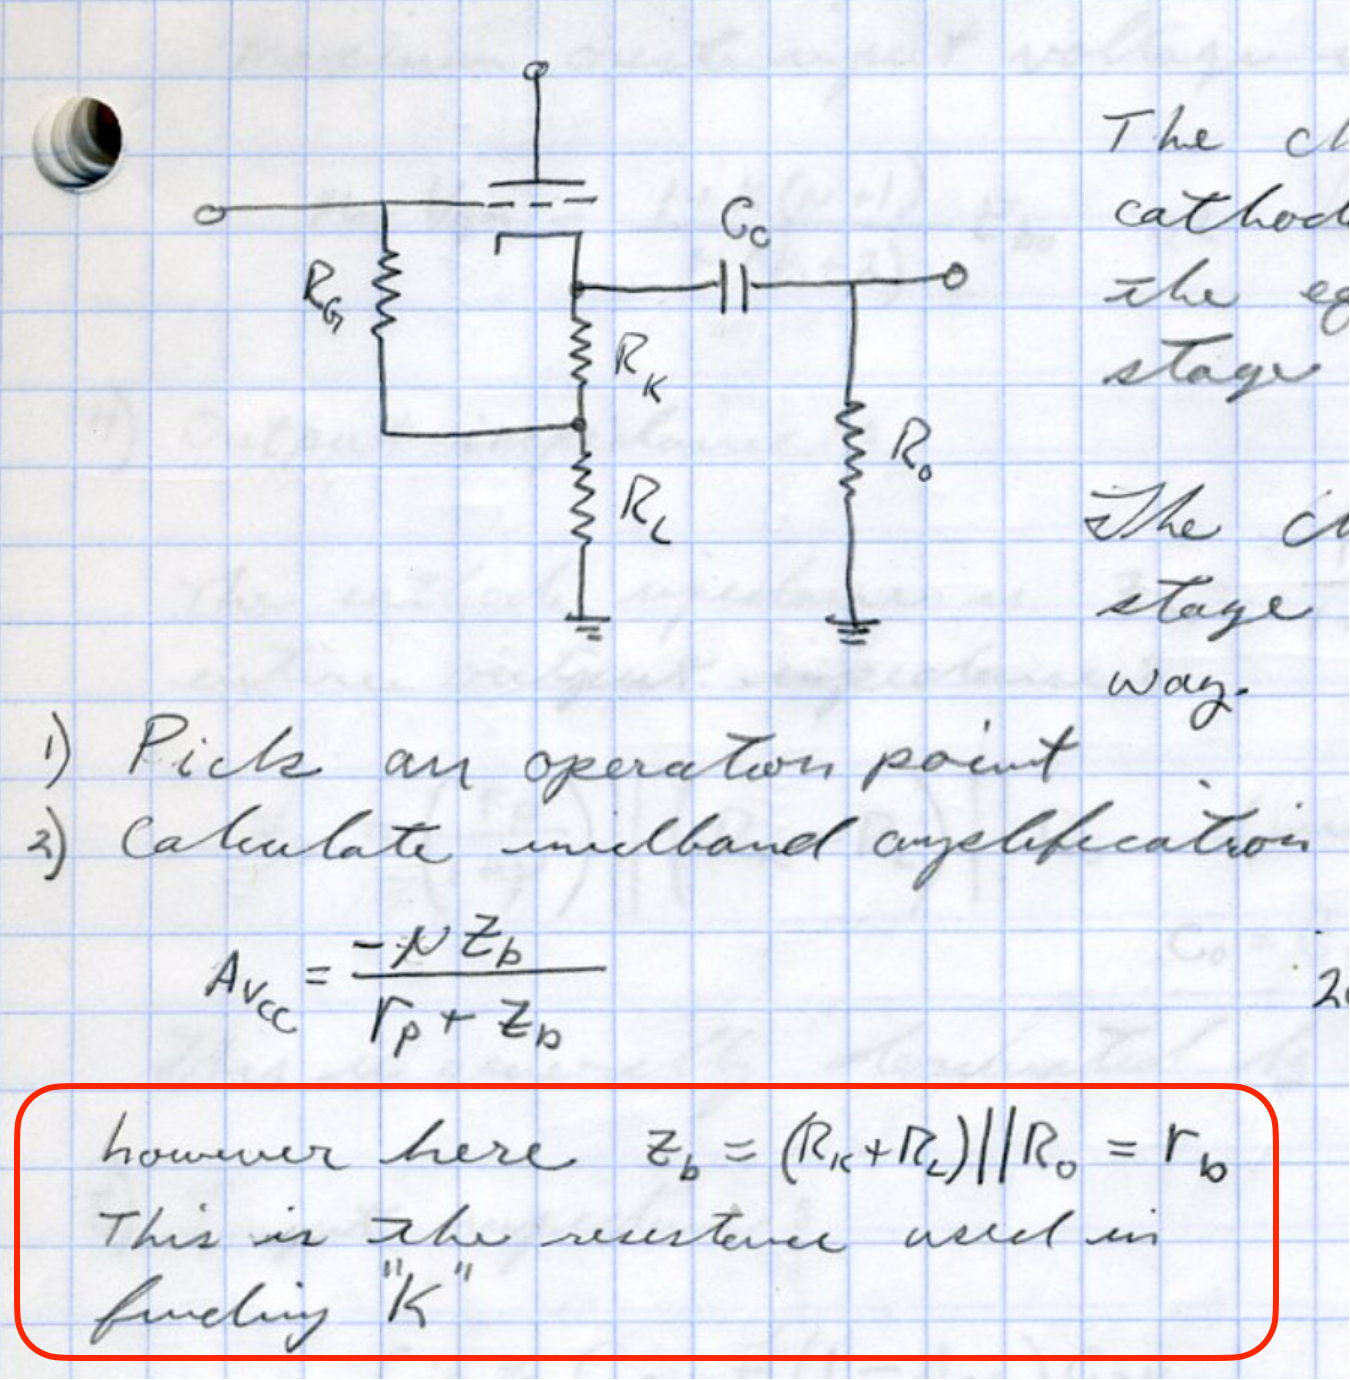 The
cathod
C_c
R_G
the eq
R_K
stage
R_o
R_L
The
stage
way.
1) Pick an operation point
2) Calculate midband amplification
A_vcc = -μ Z_b / r_p + Z_b
however here z_b = (R_K+R_L)||R_o = r_b
This is the resistance used in
finding "K"